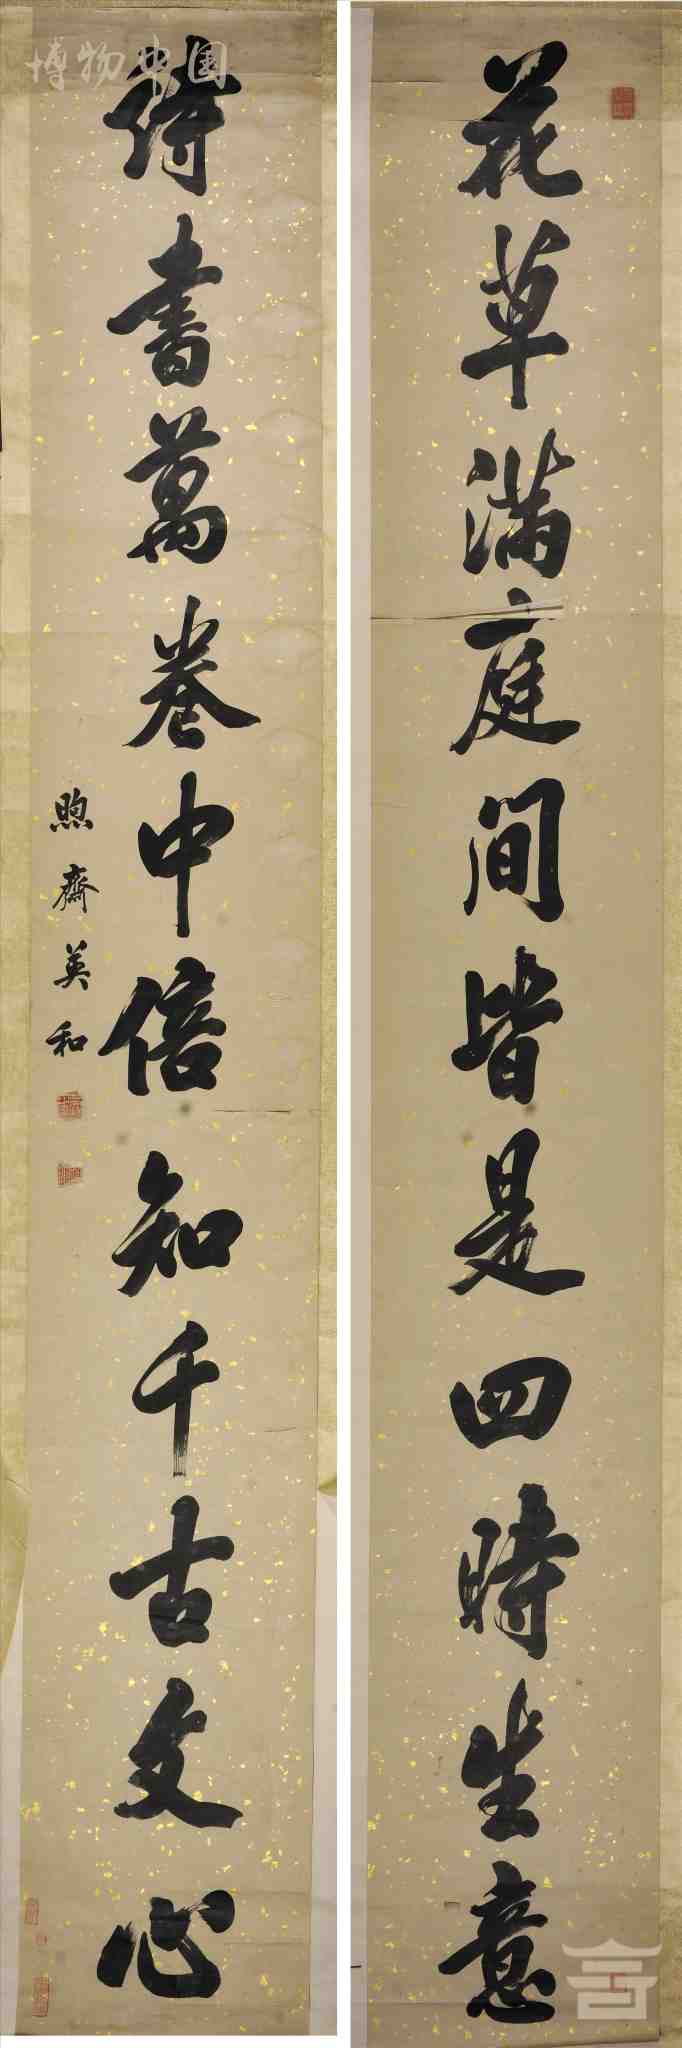 花草满庭间皆是四时生意
诗书萬卷中倍知千古文心
煦齋英和
博物中国